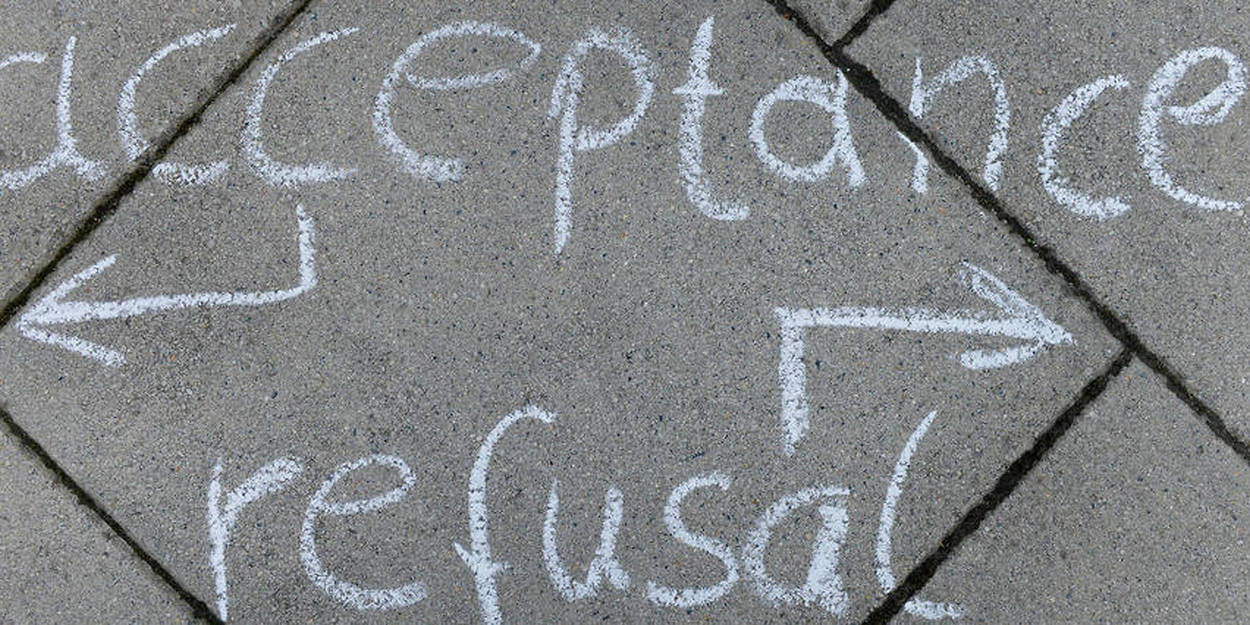 acceptance
refusal